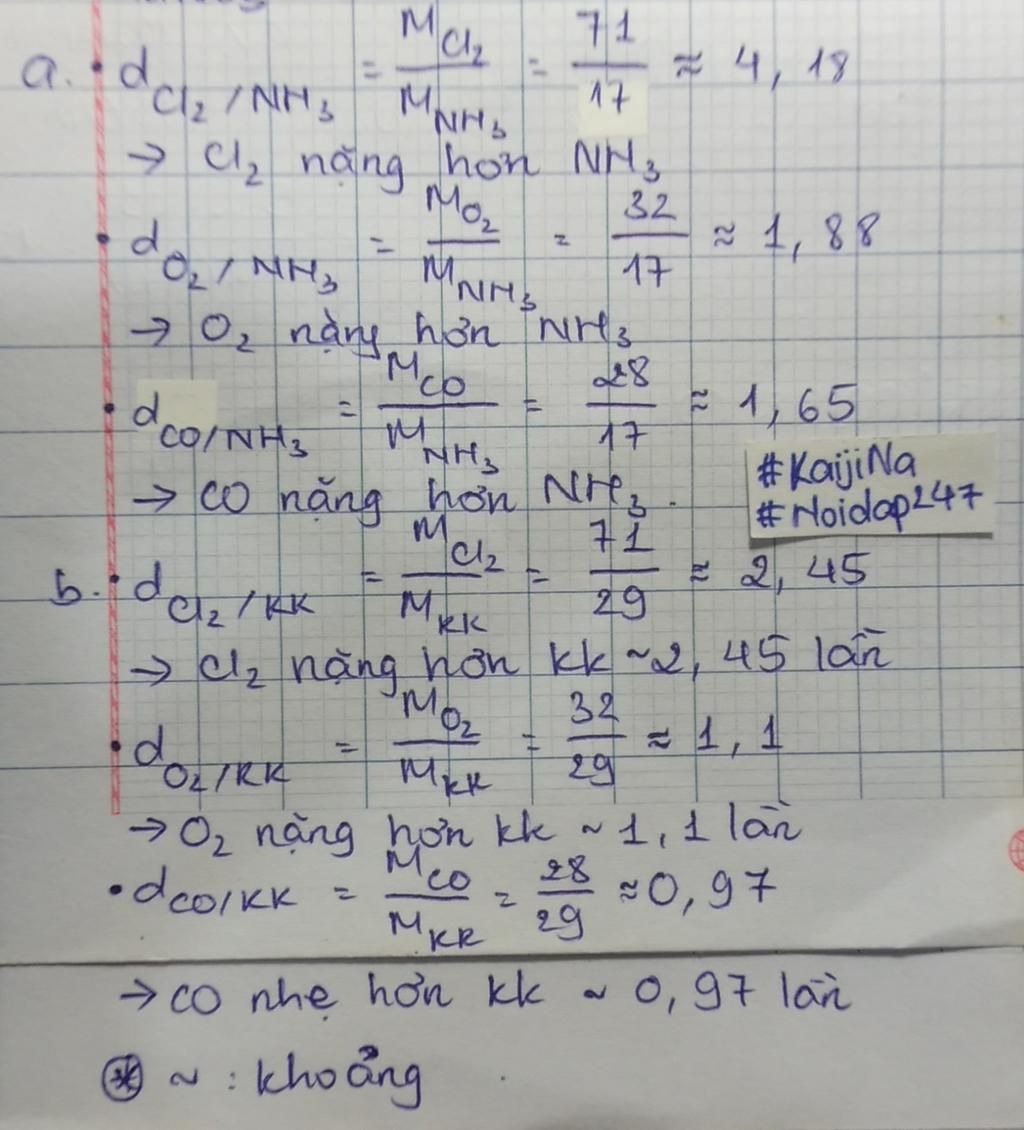 a. • d Cl₂/NH₃ = M Cl₂ / M NH₃ = 71/17 ≈ 4,18
→ Cl₂ nặng hơn NH₃
• d O₂/NH₃ = M O₂ / M NH₃ = 32/17 ≈ 1,88
→ O₂ nặng hơn NH₃
• d CO/NH₃ = M CO / M NH₃ = 28/17 ≈ 1,65
→ CO nặng hơn NH₃.
#KaijiNa
#Noidap247
b. • d Cl₂/KK = M Cl₂ / M KK = 71/29 ≈ 2,45
→ Cl₂ nặng hơn kk ~2,45 lần
• d O₂/KK = M O₂ / M KK = 32/29 ≈ 1,1
→ O₂ nặng hơn kk ~ 1,1 lần
• d CO/KK = M CO / M KK = 28/29 ≈ 0,97
→ CO nhẹ hơn kk ~ 0,97 lần
⊛ ~ : khoảng